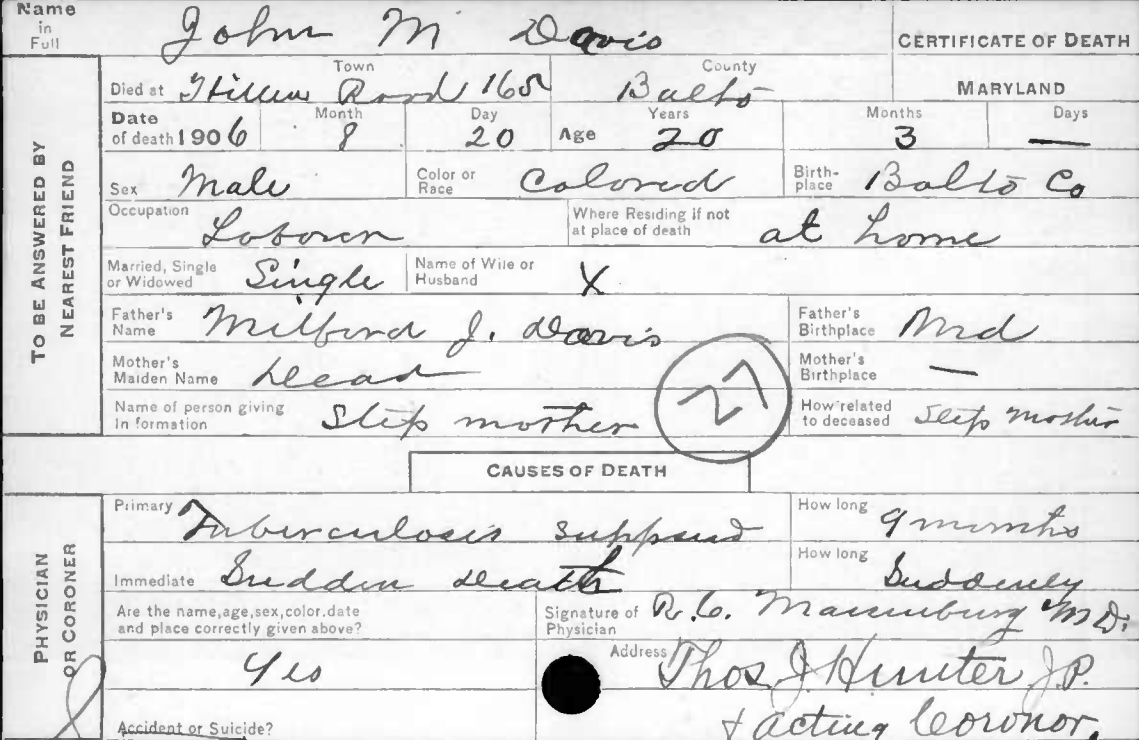 Name in Full John M Davis
CERTIFICATE OF DEATH
TO BE ANSWERED BY NEAREST FRIEND
Died at Town Road 165 County Balto MARYLAND
Date of death 1906 Month 8 Day 20 Age Years 20 Months 3 Days —
Sex Male Color or Race Colored Birth-place Balto Co
Occupation Where Residing if not at place of death at home
Married, Single or Widowed Single Name of Wife or Husband X
Father's Name Milford J. Davis Father's Birthplace Md
Mother's Maiden Name Dead Mother's Birthplace —
Name of person giving In formation Step mother How related to deceased Step Mother
27
CAUSES OF DEATH
PHYSICIAN OR CORONER
Primary Tuberculosis How long 9 months
Immediate Sudden death How long Suddenly
Are the name,age,sex,color.date and place correctly given above? Yes
Signature of Physician R. C. M.D.
Address Thos J Hunter J.P.
& acting Coronor.
Accident or Suicide?